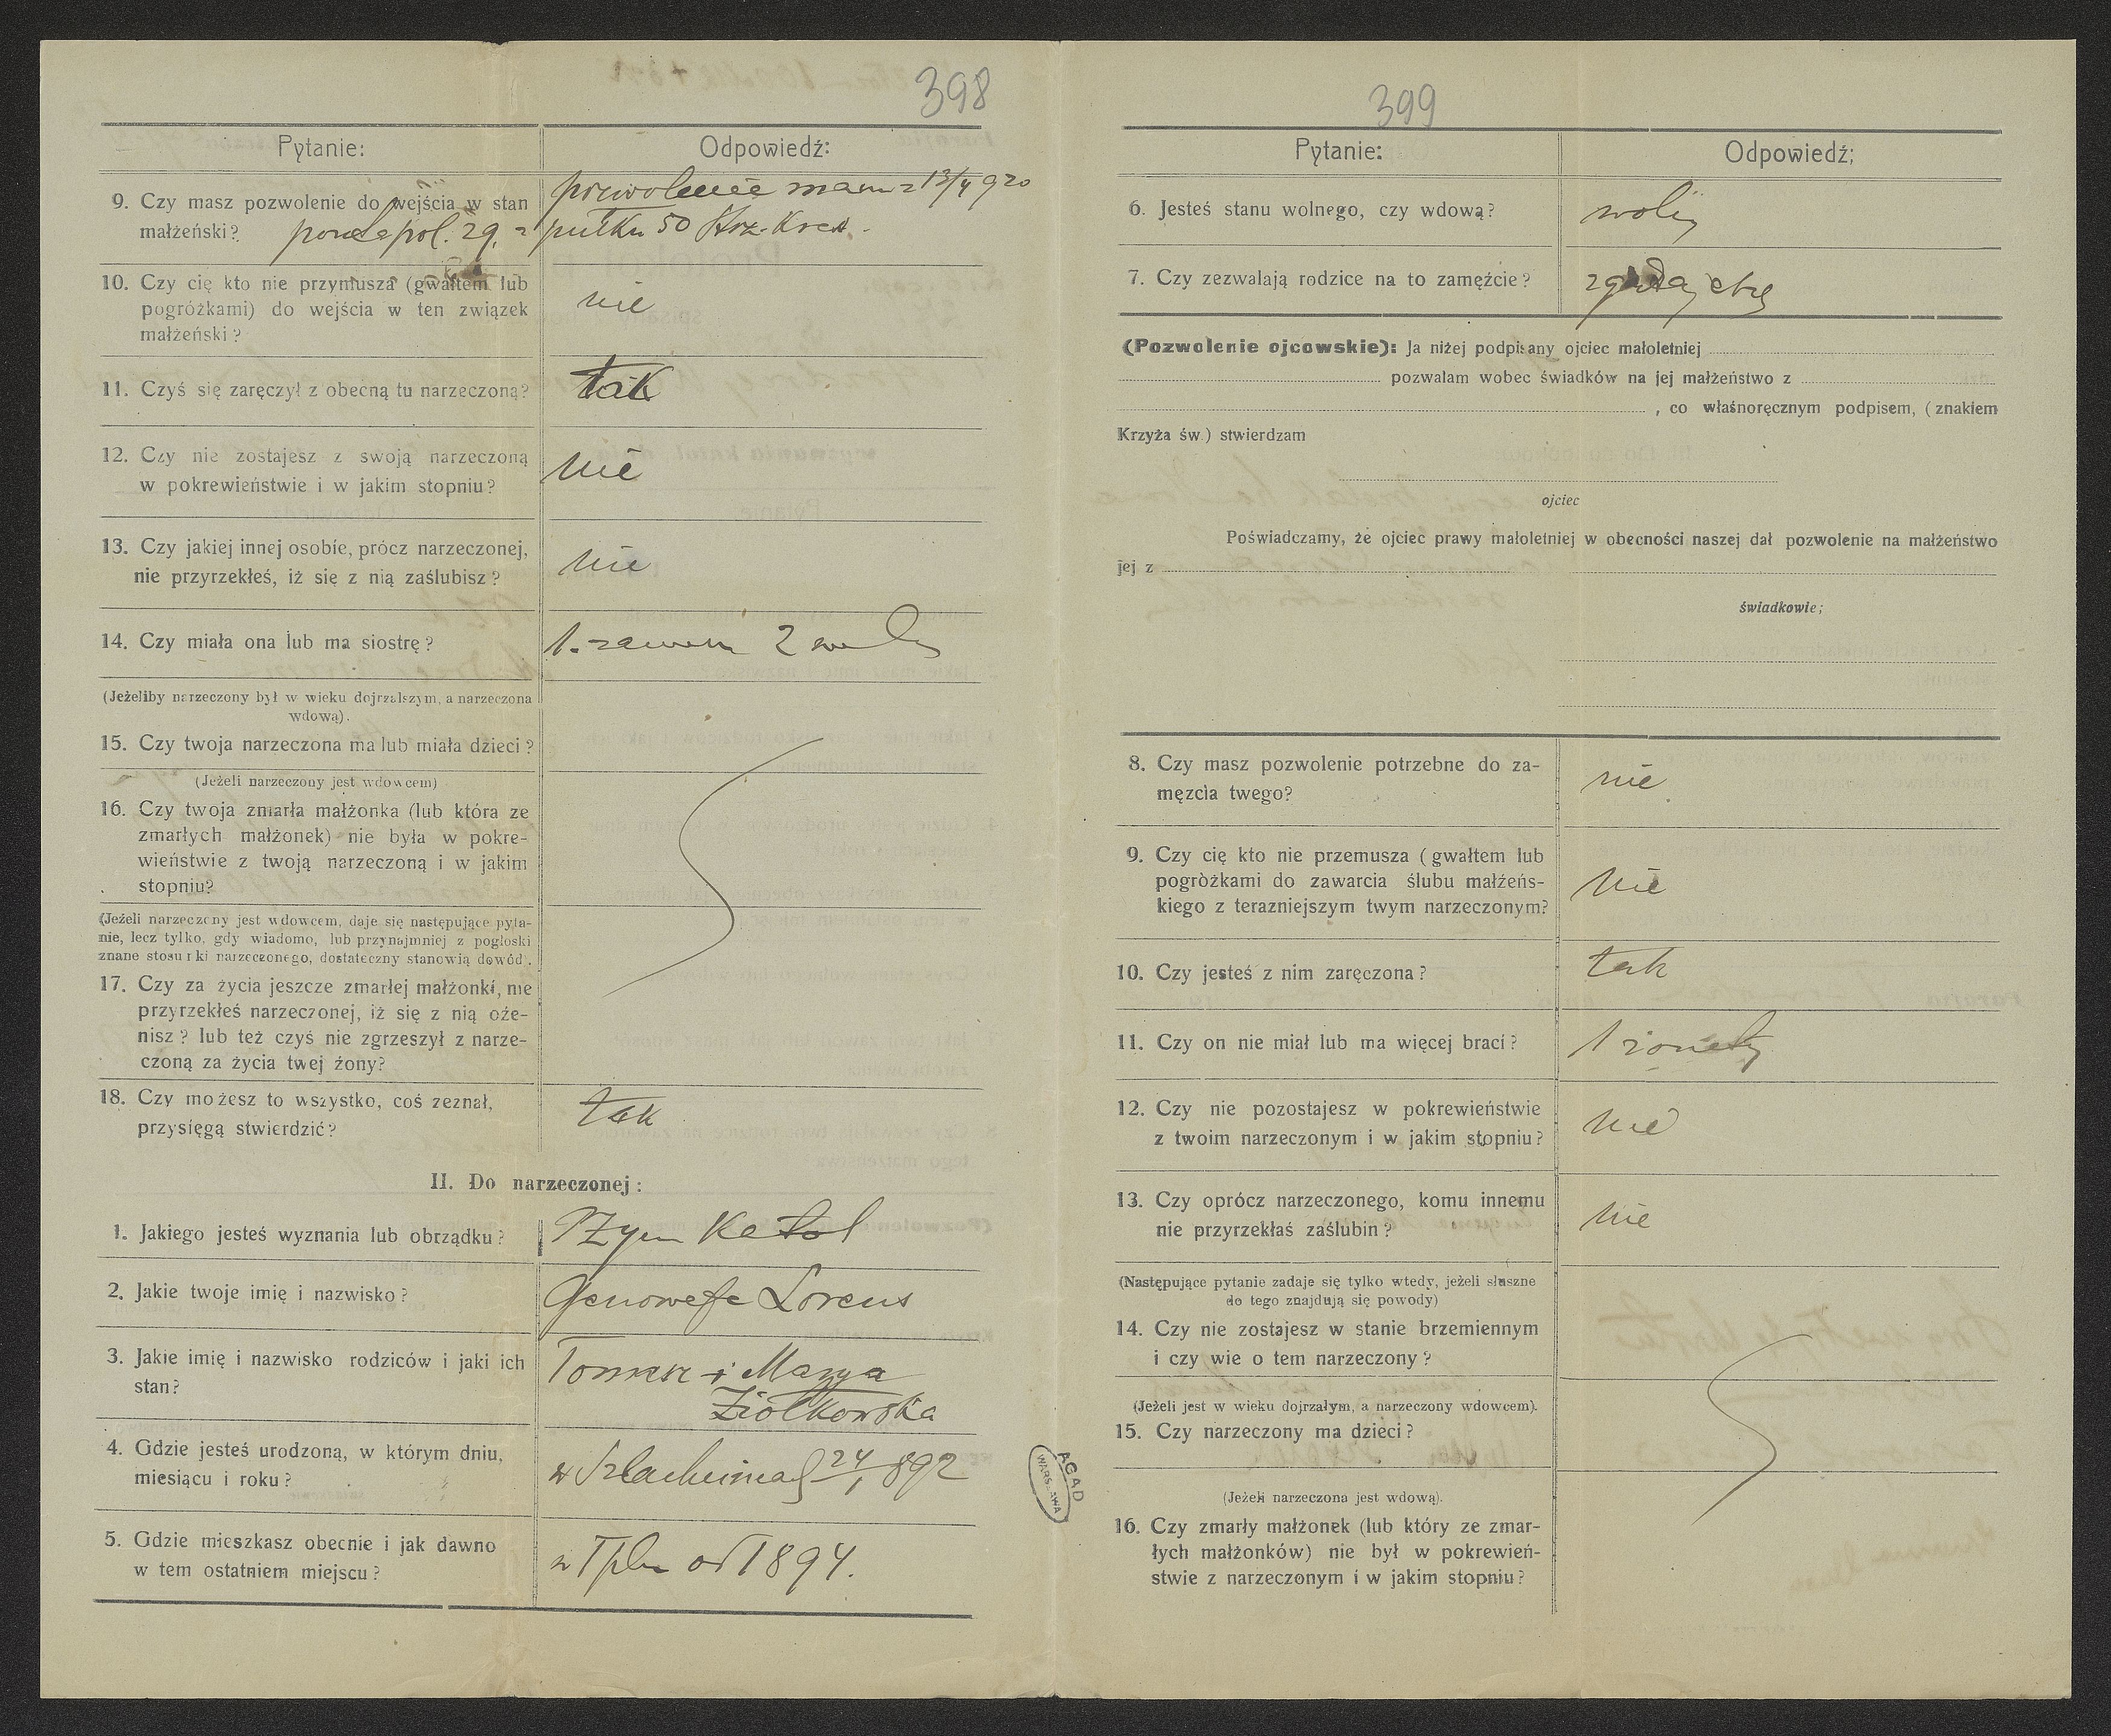 398
Pytanie:
Odpowiedź:
9. Czy masz pozwolenie do wejścia w stan
małżeński?
pozwolenie mam z 13/4 920
pol. 29. z pułku 50 Strz. Kres.
10. Czy cię kto nie przymusza (gwałtem lub
pogróżkami) do wejścia w ten związek
małżeński?
nie
11. Czyś się zaręczył z obecną tu narzeczoną?
tak
12. Czy nie zostajesz z swoją narzeczoną
w pokrewieństwie i w jakim stopniu?
nie
13. Czy jakiej innej osobie, prócz narzeczonej,
nie przyrzekłeś, iż się z nią zaślubisz?
nie
14. Czy miała ona lub ma siostrę?
1. zam 2 wol
(Jeżeliby narzeczony był w wieku dojrzalszym, a narzeczona
wdową).
15. Czy twoja narzeczona ma lub miała dzieci?
(Jeżeli narzeczony jest wdowcem)
16. Czy twoja zmarła małżonka (lub która ze
zmarłych małżonek) nie była w pokre-
wieństwie z twoją narzeczoną i w jakim
stopniu?
(Jeżeli narzeczony jest wdowcem, daje się następujące pyta-
nie, lecz tylko, gdy wiadomo, lub przynajmniej z pogłoski
znane stosunki narzeczonego, dostateczny stanowią dowód).
17. Czy za życia jeszcze zmarłej małżonki, nie
przyrzekłeś narzeczonej, iż się z nią oże-
nisz? lub też czyś nie zgrzeszył z narze-
czoną za życia twej żony?
18. Czy możesz to wszystko, coś zeznał,
przysięgą stwierdzić?
tak
II. Do narzeczonej:
1. Jakiego jesteś wyznania lub obrządku?
Rzym Katol
2. Jakie twoje imię i nazwisko?
Genowefa Lorens
3. Jakie imię i nazwisko rodziców i jaki ich
stan?
Tomasz i Marya
Ziółkowska
4. Gdzie jesteś urodzoną, w którym dniu,
miesiącu i roku?
w 24/1 892
5. Gdzie mieszkasz obecnie i jak dawno
w tem ostatniem miejscu?
w Tplu od 1894.
AGAD
WARSZAWA
399
Pytanie:
Odpowiedź;
6. Jesteś stanu wolnego, czy wdową?
wolny
7. Czy zezwalają rodzice na to zamęźcie?
zgadzają się
(Pozwolenie ojcowskie): Ja niżej podpisany ojciec małoletniej
pozwalam wobec świadków na jej małżeństwo z
, co właśnoręcznym podpisem, (znakiem
Krzyża św.) stwierdzam
ojciec
Poświadczamy, że ojciec prawy małoletniej w obecności naszej dał pozwolenie na małżeństwo
jej z
świadkowie;
8. Czy masz pozwolenie potrzebne do za-
męzcia twego?
nie
9. Czy cię kto nie przemusza (gwałtem lub
pogròżkami do zawarcia ślubu małżeńs-
kiego z terazniejszym twym narzeczonym?
nie
10. Czy jesteś z nim zaręczona?
tak
11. Czy on nie miał lub ma więcej braci?
1 żonaty
12. Czy nie pozostajesz w pokrewieństwie
z twoim narzeczonym i w jakim stopniu?
nie
13. Czy oprócz narzeczonego, komu innemu
nie przyrzekłaś zaślubin?
nie
(Następujące pytanie zadaje się tylko wtedy, jeżeli słuszne
do tego znajdują się powody)
14. Czy nie zostajesz w stanie brzemiennym
i czy wie o tem narzeczony?
(Jeżeli jest w wieku dojrzałym, a narzeczony wdowcem).
15. Czy narzeczony ma dzieci?
(Jeżeli narzeczona jest wdową).
16. Czy zmarły małżonek (lub który ze zmar-
łych małżonków) nie był w pokrewień-
stwie z narzeczonym i w jakim stopniu?